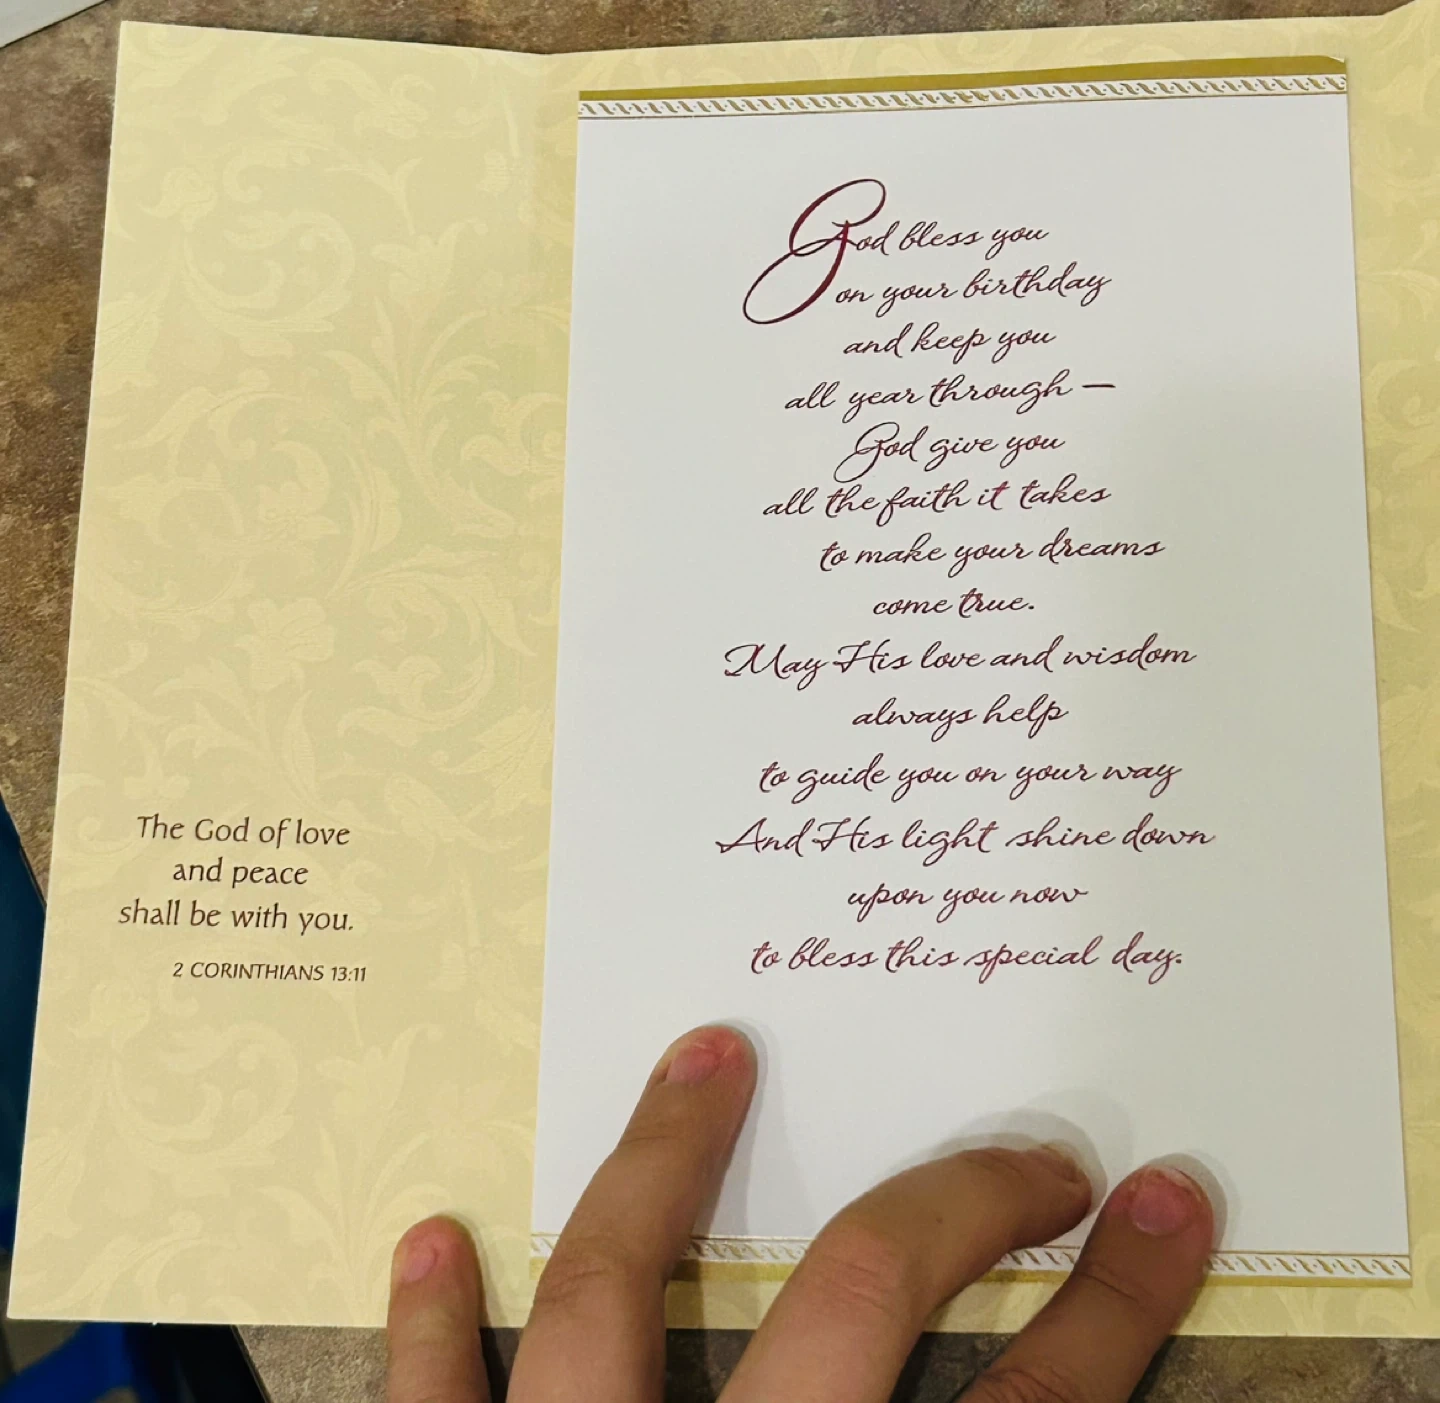 The God of love
and peace
shall be with you.
2 CORINTHIANS 13:11
God bless you
on your birthday
and keep you
all year through —
God give you
all the faith it takes
to make your dreams
come true.
May His love and wisdom
always help
to guide you on your way
And His light shine down
upon you now
to bless this special day.